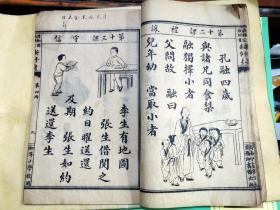 第十二課 禮讓
孔融四歲
與諸兄同食梨
融獨擇小者
父問故 融曰
兒年幼 當取小者
第十三課 守信
李生有地圖
張生借閱之
約日曜送還
及期 張生如約
送還李生